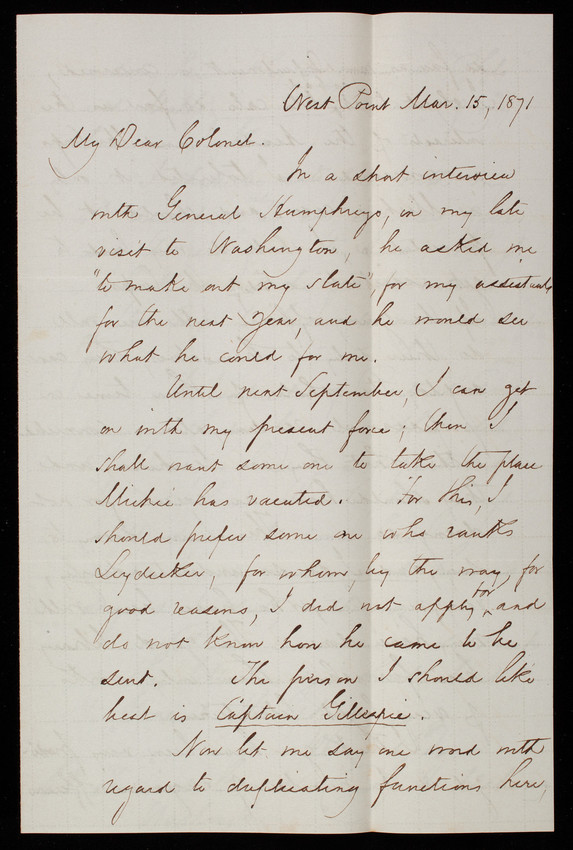 West Point Mar. 15, 1871
My Dear Colonel.
In a short interview
with General Humphreys, on my late
visit to Washington, he asked me
"to make out my slate", for my assistants
for the next year, and he would see
what he could for me.
Until next September, I can get
on with my present force; then I
shall want some one to take the place
Michie has vacated. For this, I
should prefer some one who ranks
Lydecker, for whom, by the way, for
good reasons, I did not apply for, and
do not know how he came to be
sent. The person I should like
best is Captain Gillespie.
Now let me say one word with
regard to duplicating functions here,